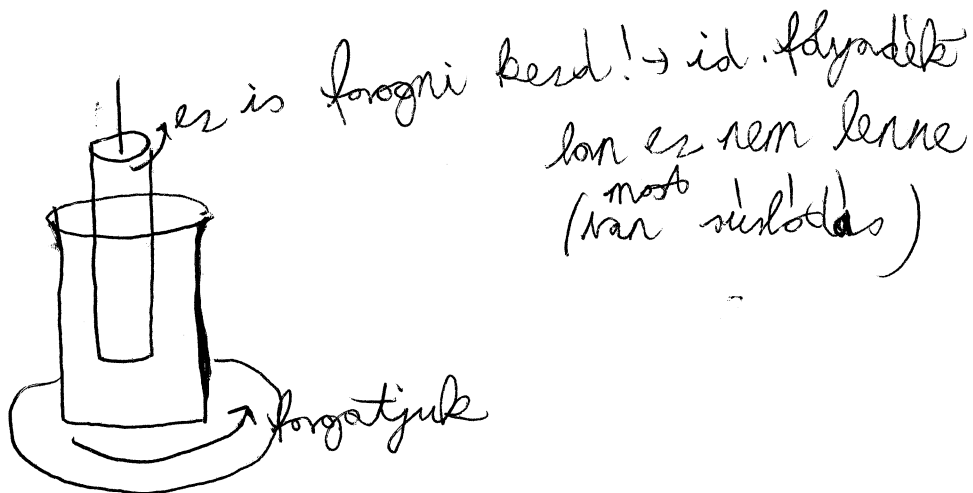 ez is forogni kezd! → id. folyadék
ban ez nem lenne
most
(van súrlódás)
forgatjuk